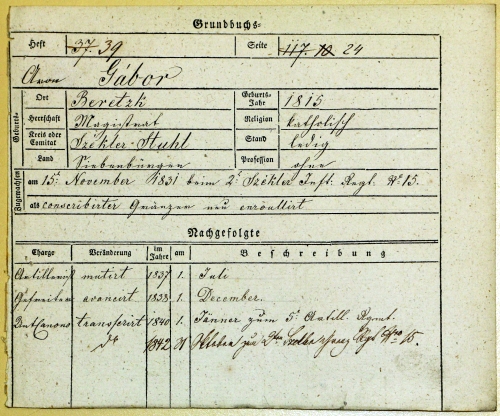 Grundbuchs-
Heft 37. 39 Seite 117. 10 24
Aron Gábor
Geburts-
Ort Beretzk Geburts-Jahr 1815
Herrschaft Magistrat Religion katholisch
Kreis oder Comitat Székler-Stuhl Stand ledig
Land Siebenbürgen Profession ohne
Zugewachsen
am 15t November 1831 beim 2t Székler Inft. Regt. No 15.
als conscribirter Gränzer neu enrollirt
Nachgefolgte
Charge Veränderung im Jahre am Beschreibung
mutirt 1837 1. Juli
Gefreiter avancirt 1838 1. December.
transferirt 1840 1. Jänner zum 5t Artill. Regmt.
dto 1842 21 Oktober zu 15.